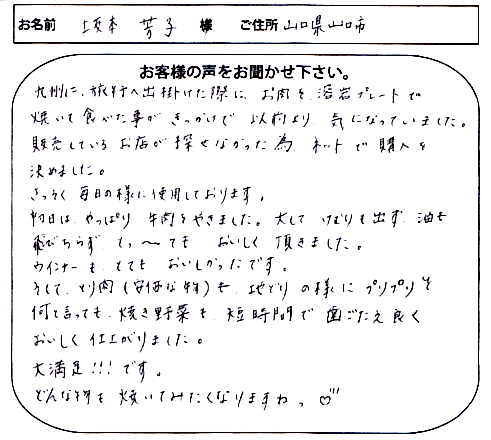 お名前 坂本 芳子 様 ご住所 山口県山口市
お客様の声をお聞かせ下さい。
九州に、旅行へ出掛けた際に、お肉を、溶岩プレートで
焼いて食べた事がきっかけで 以前より、気になっていました。
販売しているお店が 探せなかった為、ネットで購入を
決めました。
さっそく 毎日の様に使用しております。
初日は、やっぱり 牛肉をやきました。大して けむりも出ず、油も
飛びちらず、とっ〜ても おいしく 頂きました。
ウインナーも、とても おいしかったです。
そして、とり肉(安価な物)も、地どりの様に プリプリで
何と言っても、焼き野菜も、短時間で 歯ごたえ良く
おいしく 仕上がりました。
大満足!!!です。
どんな物も 焼いてみたくなりますねっ♡